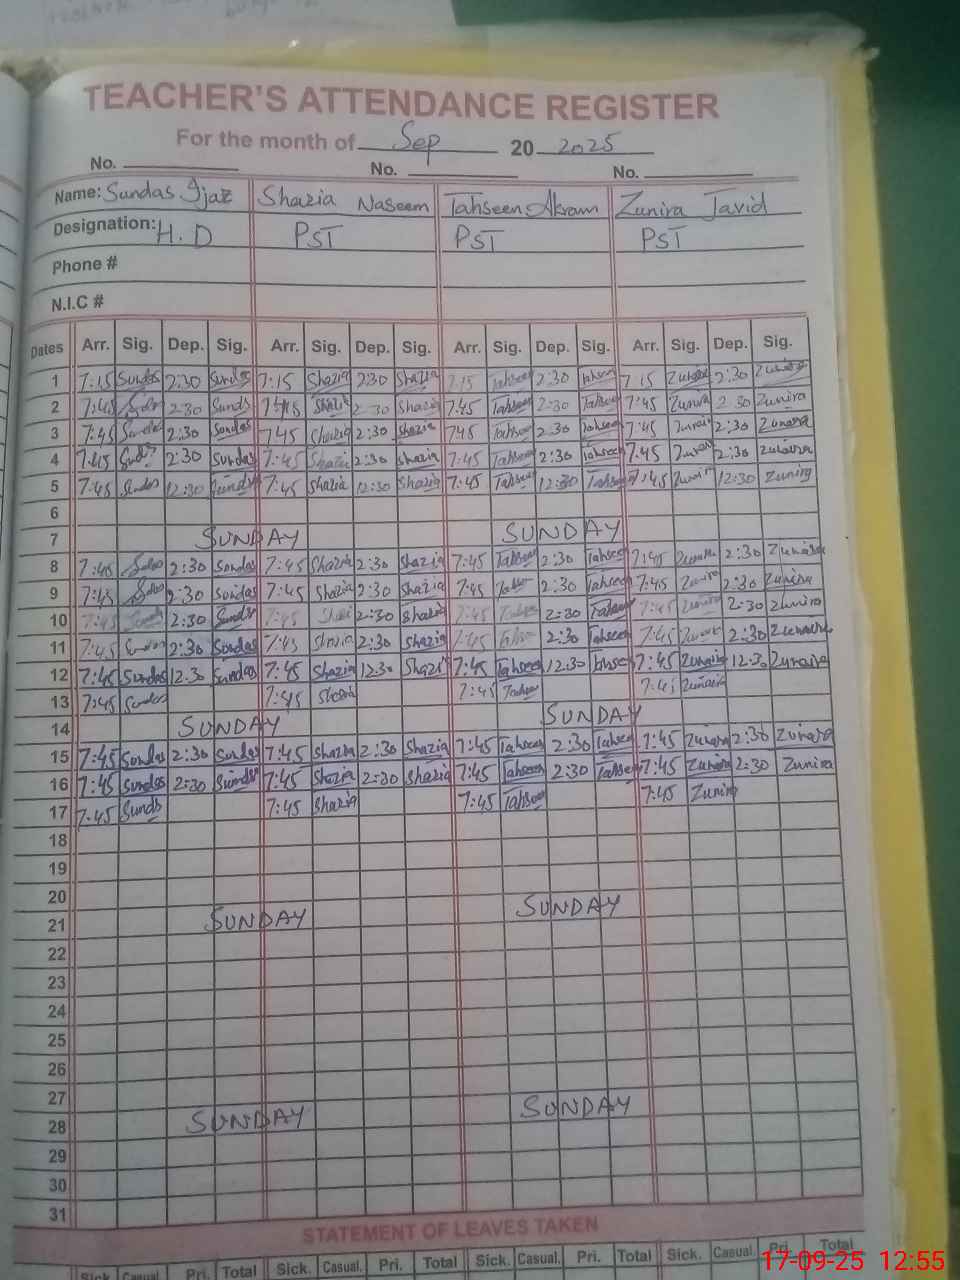 TEACHER'S ATTENDANCE REGISTER
For the month of Sep 20 2025
No. No. No.
Name: Sundas Ijaz Shazia Naseem Tahseen Akram Zunira Javid
Designation: H.D PST PST PST
Phone #
N.I.C #
Dates Arr. Sig. Dep. Sig. Arr. Sig. Dep. Sig. Arr. Sig. Dep. Sig. Arr. Sig. Dep. Sig.
1 7:15 Sundas 2:30 Sundas 7:15 Shazia 2:30 Shazia 7:15 Tahseen 2:30 Tahseen 7:15 2:30
2 7:45 2:30 Sunds 7:45 Shazia 2:30 Shazia 7:45 Tahseen 2:30 Tahseen 7:45 Zunira 2:30 Zunira
3 7:45 2:30 Sundas 7:45 Shazia 2:30 Shazia 7:45 Tahseen 2:30 Tahseen 7:45 2:30
4 7:45 2:30 Sundas 7:45 Shazia 2:30 Shazia 7:45 Tahseen 2:30 Tahseen 7:45 2:30
5 7:45 Sundas 12:30 Sundas 7:45 Shazia 12:30 Shazia 7:45 Tahseen 12:30 Tahseen 7:45 12:30
6
7 SUNDAY SUNDAY
8 7:45 2:30 Sundas 7:45 Shazia 2:30 Shazia 7:45 Tahseen 2:30 Tahseen 7:45 2:30
9 7:45 2:30 Sundas 7:45 Shazia 2:30 Shazia 7:45 2:30 Tahseen 7:45 Zunira 2:30 Zunira
10 7:45 2:30 Sunds 7:45 2:30 Shazia 7:45 2:30 7:45 2:30 Zunira
11 7:45 Sundas 2:30 Sundas 7:45 Shazia 2:30 Shazia 7:45 2:30 Tahseen 7:45 2:30
12 7:45 Sundas 12:30 Sundas 7:45 Shazia 12:30 Shazi 7:45 Tahseen 12:30 7:45 Zunaira 12:30 Zunaira
13 7:45 Sundas 7:45 7:45 7:45 Zunaira
14 SUNDAY SUNDAY
15 7:45 Sundas 2:30 Sundas 7:45 Shazia 2:30 Shazia 7:45 Tahseen 2:30 Tahseen 7:45 2:30
16 7:45 Sundas 2:30 Sunds 7:45 Shazia 2:30 Shazia 7:45 Tahseen 2:30 Tahseen 7:45 Zunira 2:30 Zunira
17 7:45 Sunds 7:45 Shazia 7:45 Tahseen 7:45 Zunira
18
19
20
21 SUNDAY SUNDAY
22
23
24
25
26
27
28 SUNDAY SUNDAY
29
30
31
STATEMENT OF LEAVES TAKEN
Sick Casual Pri. Total Sick. Casual. Pri. Total Sick. Casual. Pri. Total
17-09-25 12:55